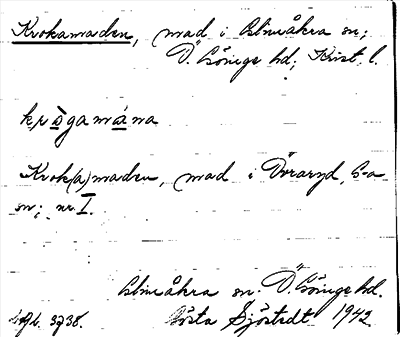 Krokamaden, mad i Glimåkra sn;
Ö. Göinge hd; Krist. l.
krògamàna
Krok(a)maden, mad i Öraryd, G-a
sn; nr I.
Glimåkra sn. Ö. Göinge hd.
Uppt. 3738. Gösta Sjöstedt 1942.